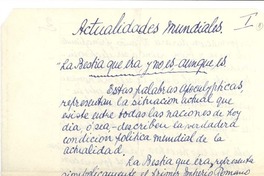 Actualidades Mundiales.
I
-La Bestia que era y no es aunque es
Estas palabras apocalypticas,
representan la situación actual que
existe entre todas las naciones de hoy
dia, ó sea, describen la verdadera
condición política mundial de la
actualidad.
La Bestia que era, representa
simbolicamente el primer Imperio Romano